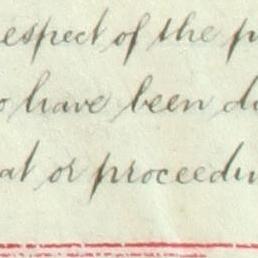 espect of the p
o have been d
at or proceedi